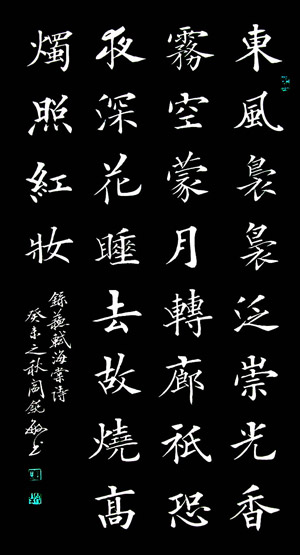 東風裊裊泛崇光香
霧空蒙月轉廊祇恐
夜深花睡去故燒高
燭照紅妝
錄蘇軾海棠詩
癸未之秋閻銳敏书